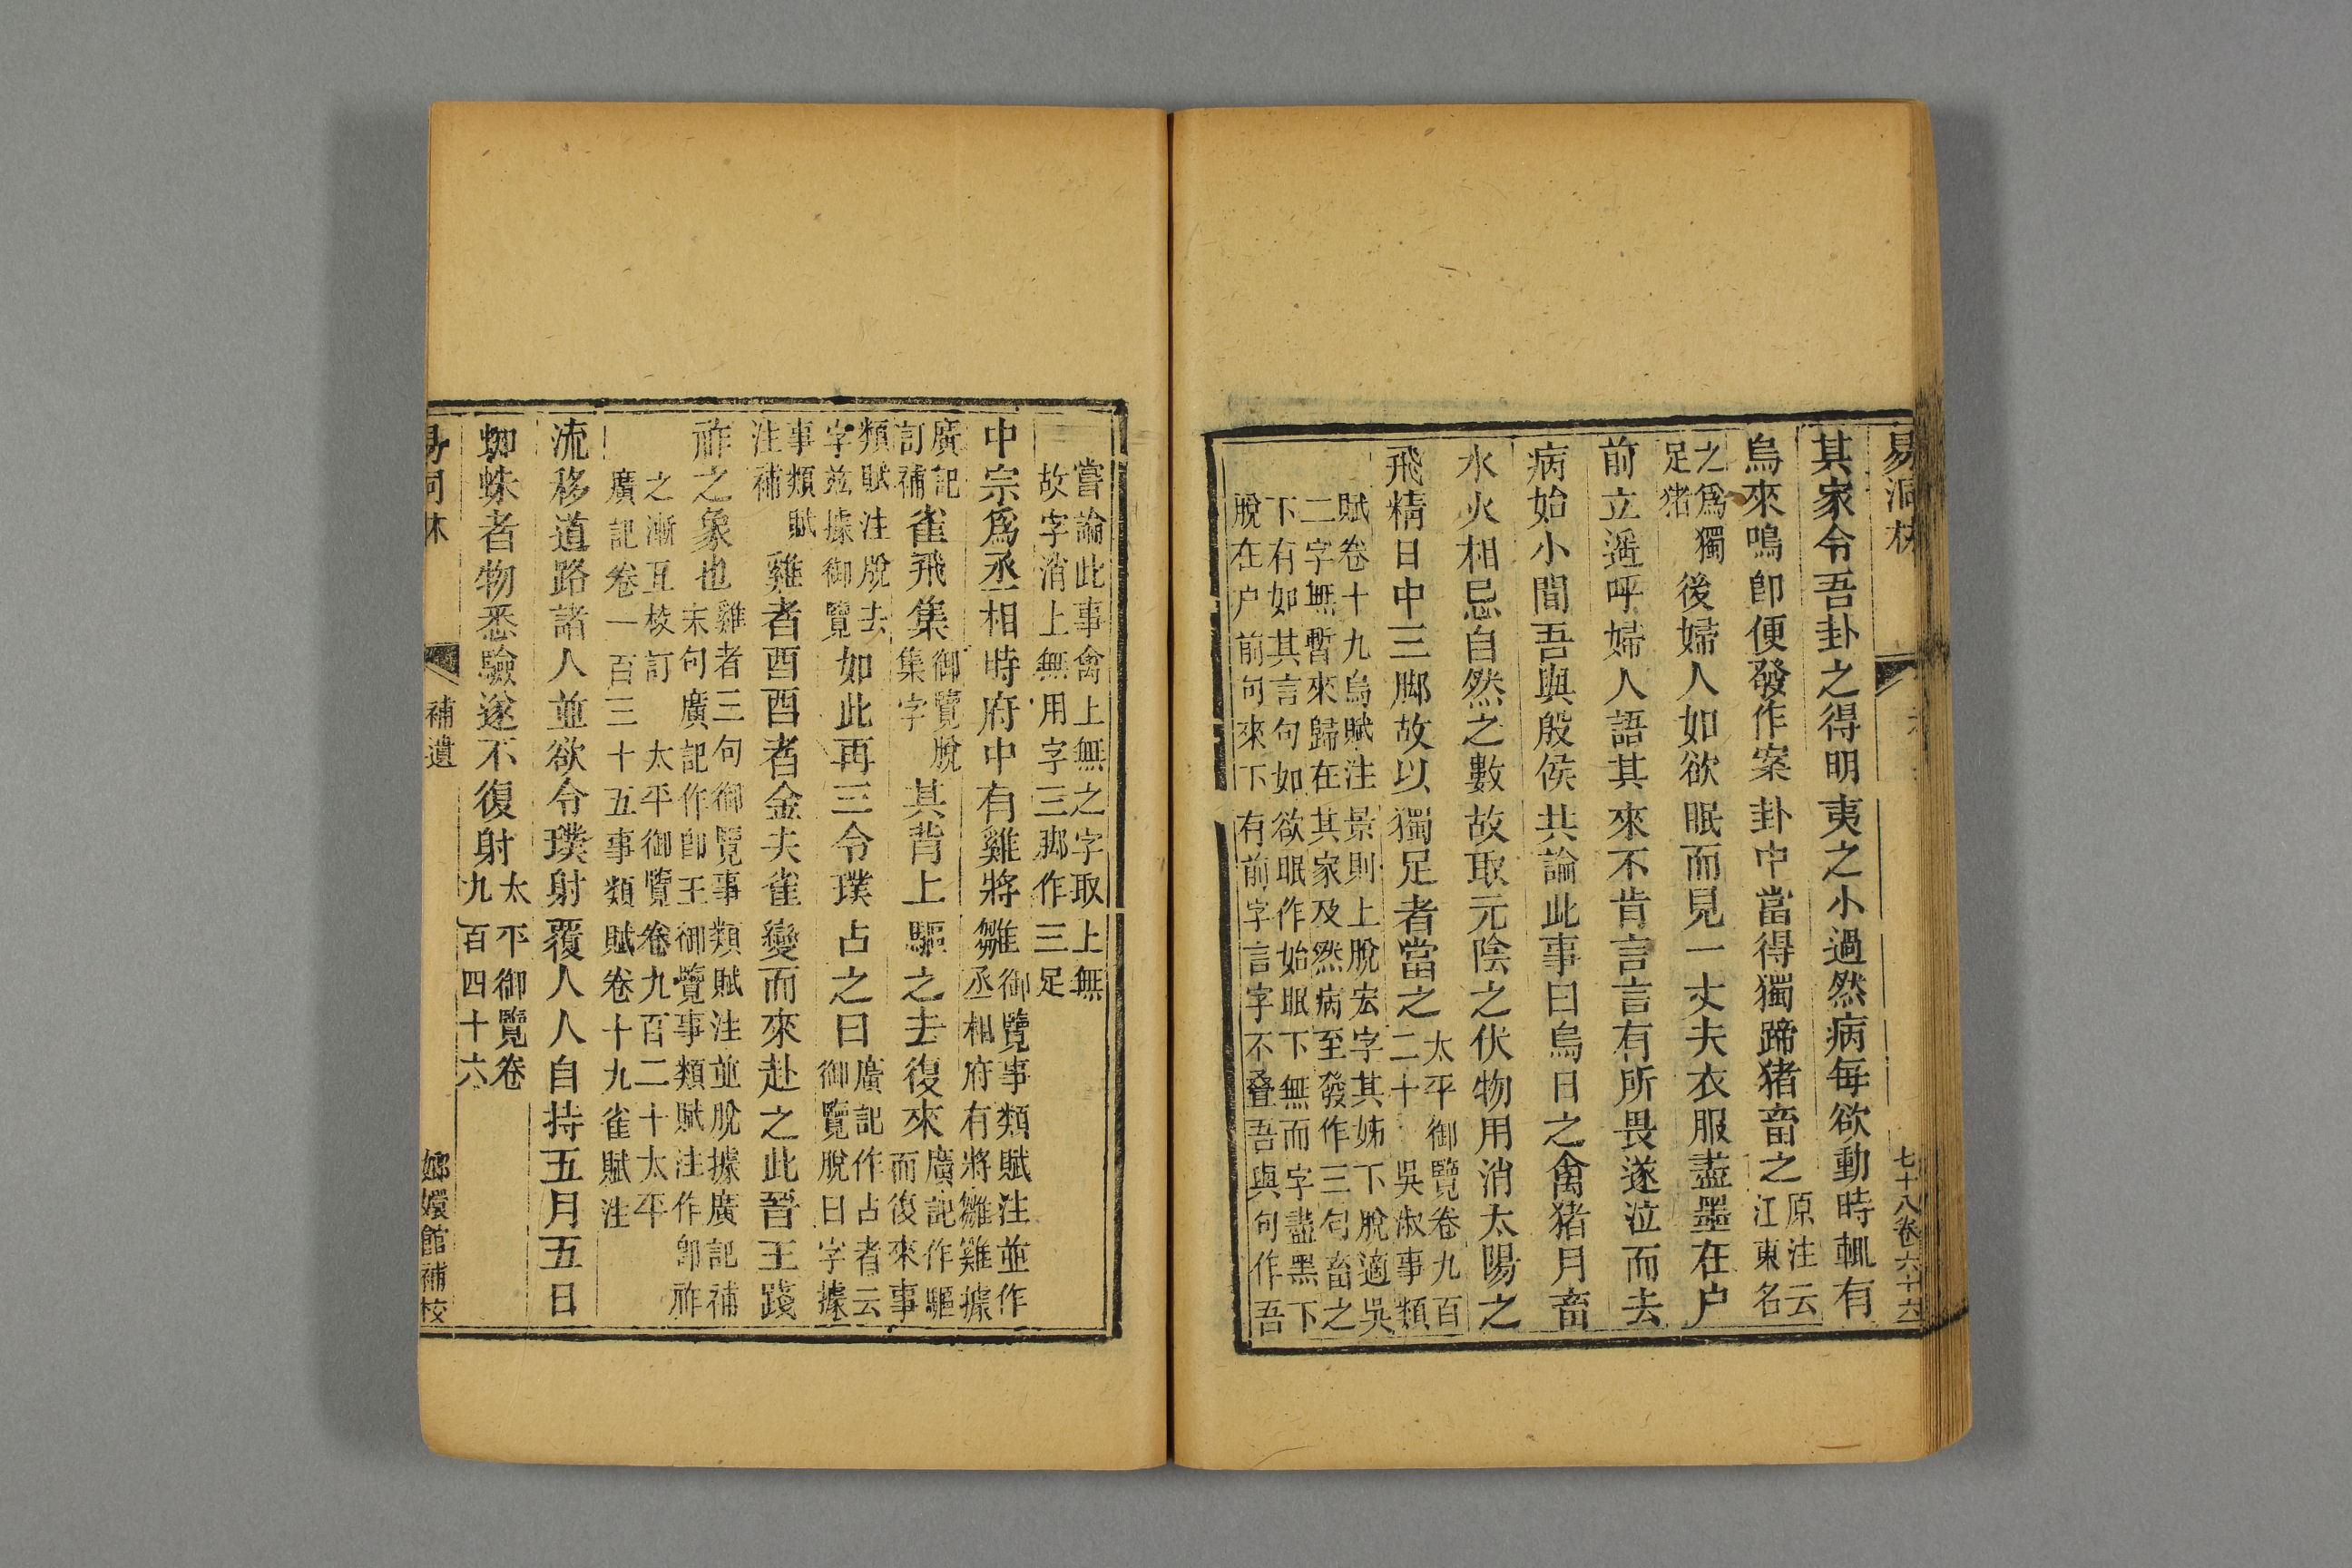 易洞林
七十八卷六十六
其家令吾卦之得明夷之小過然病每欲動時輒有
烏來鳴卽便發作案卦中當得獨蹄猪畜之原注云江東名
之爲獨足猪後婦人如欲眠而見一丈夫衣服盡墨在户
前立遥呼婦人語其來不肯言言有所畏遂泣而去
病始小間吾與殷侯共論此事曰烏日之禽猪月畜
水火相忌自然之數故取元陰之伏物用消太陽之
飛精日中三脚故以獨足者當之太平御覽卷九百二十 吳淑事類
賦卷十九烏賦注景則上脫宏字其姊下脫適吳
二字無暫來歸在其家及然病至發作三句畜之
下有如其言句如欲眠作始眠下無而字盡黑下
脫在户前句來下有前字言字不叠吾與句作吾
當論此事禽上無之字取上無
故字消上無用字三脚作三足
中宗爲丞相時府中有雞將雛御覽事類賦注並作丞相府有將雛雞據
廣記訂補雀飛集御覽脫集字其背上驅之去復來廣記作驅而復來事
類賦注脫去字兹據御覽如此再三令璞占之曰廣記作占者云御覽脫曰字據
事類賦注補雞者酉酉者金夫雀變而來赴之此晉王踐
祚之象也雞者三句御覽事類賦注並脫據廣記補末句廣記作卽王御覽事類賦注作卽祚
之漸互校訂 太平御覽卷九百二十太平
廣記卷一百三十五事類賦卷十九雀賦注
流移道路諸人並欲令璞射覆人人自持五月五日
蜘蛛者物悉驗遂不復射太平御覽卷九百四十六
補遺
嫏嬛館補校